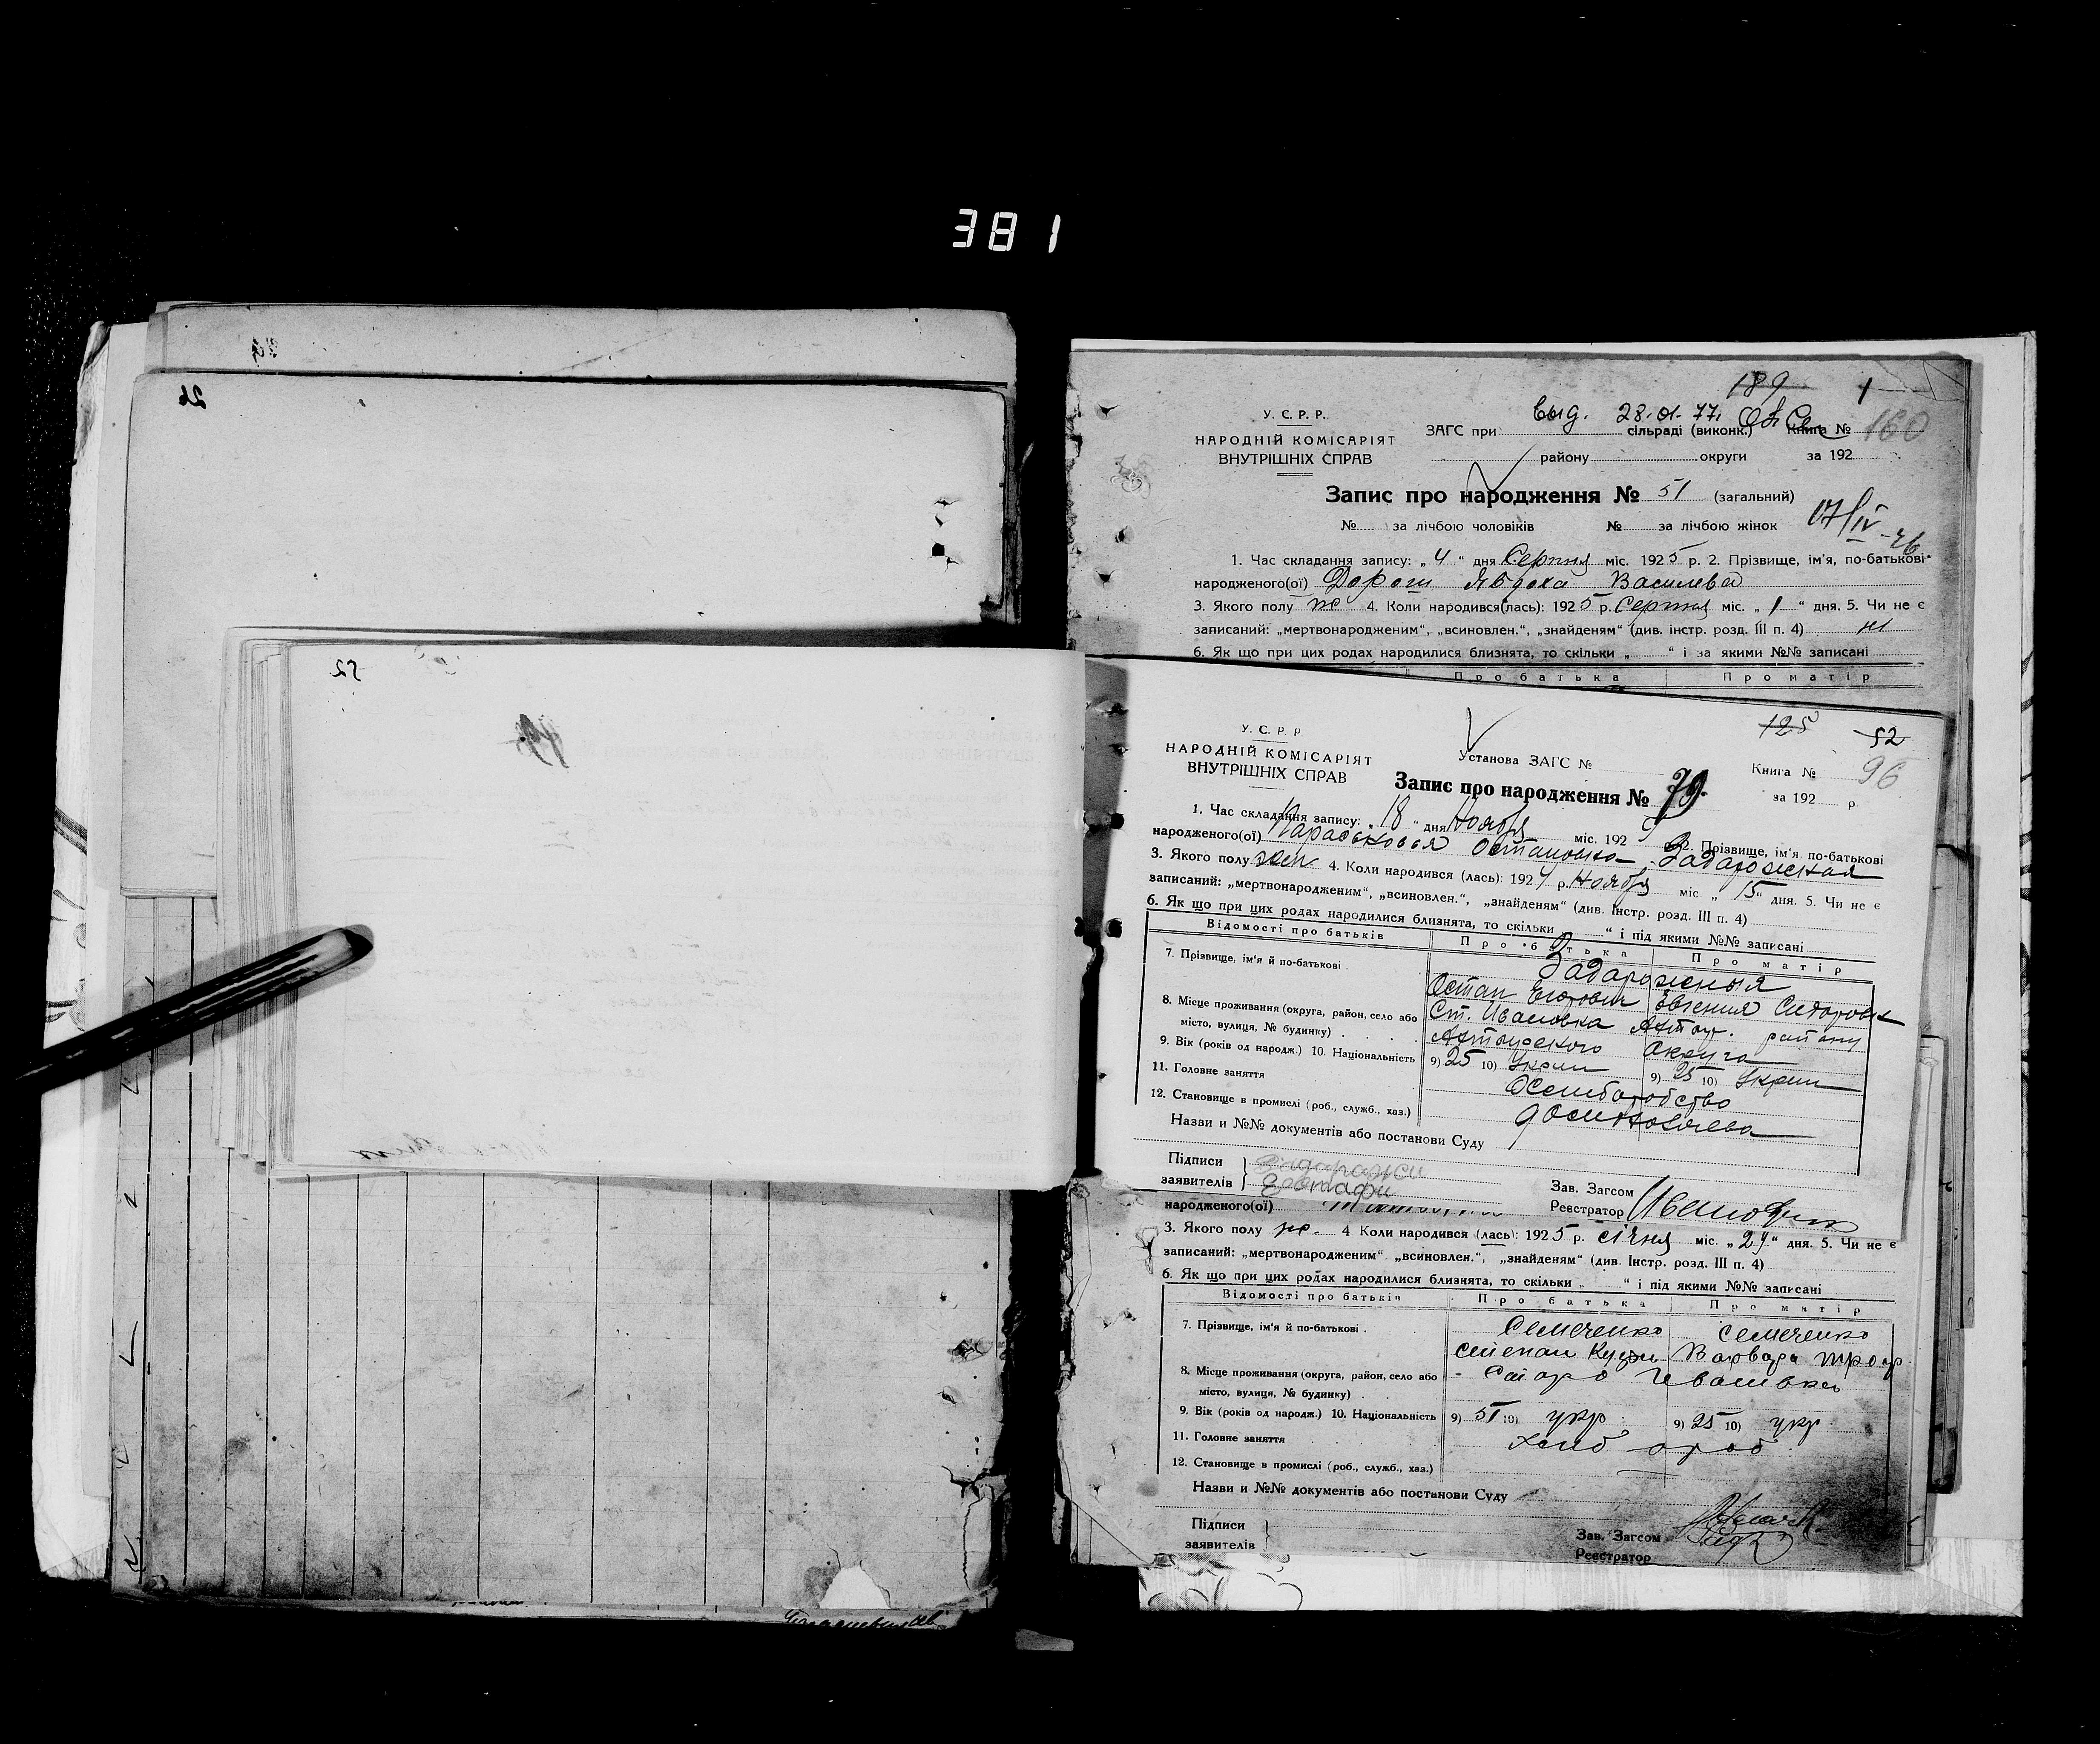 381
26
52
189 1
выд. 28.01.77.
У. С. Р. Р.
НАРОДНІЙ КОМІСАРІЯТ
ВНУТРІШНІХ СПРАВ
ЗАГС при сільраді (виконк.) Книга № 100
району округи за 192
Запис про народження № 51 (загальний)
№ за лічбою чоловіків № за лічбою жінок
17/IV-26
1. Час складання запису: „4“ дня Серпня міс. 1925 р. 2. Прізвище, ім'я, по-батькові
народженого(ої) Явдоха Василева
3. Якого полу ж 4. Коли народився(лась): 1925 р. Серпня міс. „1“ дня. 5. Чи не є
записаний: „мертвонародженим“, „всиновлен.“, „знайденям“ (див. інстр. розд. III п. 4) ні
6. Як що при цих родах народилися близнята, то скільки „ “ і за якими №№ записані
Про батька Про матір
125 52
У. С. Р. Р
НАРОДНІЙ КОМІСАРІЯТ
ВНУТРІШНІХ СПРАВ
Установа ЗАГС № Книга № 96
Запис про народження № 79. за 192 р.
1. Час складання запису: „18“ дня Ноября міс. 192 р. 2. Прізвище, ім'я по-батькові
народженого(ої) Параськовья Остаповна Задорожная
3. Якого полу жен. 4. Коли народився (лась): 1924 р. Ноября міс „15“ дня. 5. Чи не є
записаний: „мертвонародженим“, „всиновлен.“, „знайденям“ (див. Інстр. розд. III п. 4)
6. Як що при цих родах народилися близнята, то скільки „ “ і під якими №№ записані
Відомості про батьків Про батька Про матір
7. Прізвище, ім'я й по-батькові Задорожныя
Остап Евгения Сидоровна
8. Місце проживання (округа, район, село або Ст. Ивановка Ахтыр. району
місто, вулиця, № будинку) Ахтырского Округа
9. Вік (років од народж.) 10. Національність 9) 25 10) Украи 9) 25 10) Украи
11. Головне заняття
12. Становище в промислі (роб., служб., хаз.)
Назви и №№ документів або постанови Суду
Підписи
заявителів
Зав. Загсом
Реєстратор
народженого(ої)
3. Якого полу ж. 4 Коли народився (лась): 1925 р. січня міс. „24“ дня. 5. Чи не є
записаний: „мертвонародженим“ „всиновлен.“, „знайденям“ (див. Інстр. розд. III п. 4)
6. Як що при цих родах народилися близнята, то скільки „ “ і під якими №№ записані
Відомості про батьків Про батька Про матір
7. Прізвище, ім'я й по-батькові Семеченко Семеченко
степан Кузм Варвара трохр
8. Місце проживання (округа, район, село або Старо Ивановка
місто, вулиця, № будинку)
9. Вік (років од народж.) 10. Національність 9) 51 10) укр. 9) 25 10) укр.
11. Головне заняття хліб ороб
12. Становище в промислі (роб., служб., хаз.)
Назви и №№ документів або постанови Суду
Підписи
заявителів
Зав. Загсом
Реєстратор